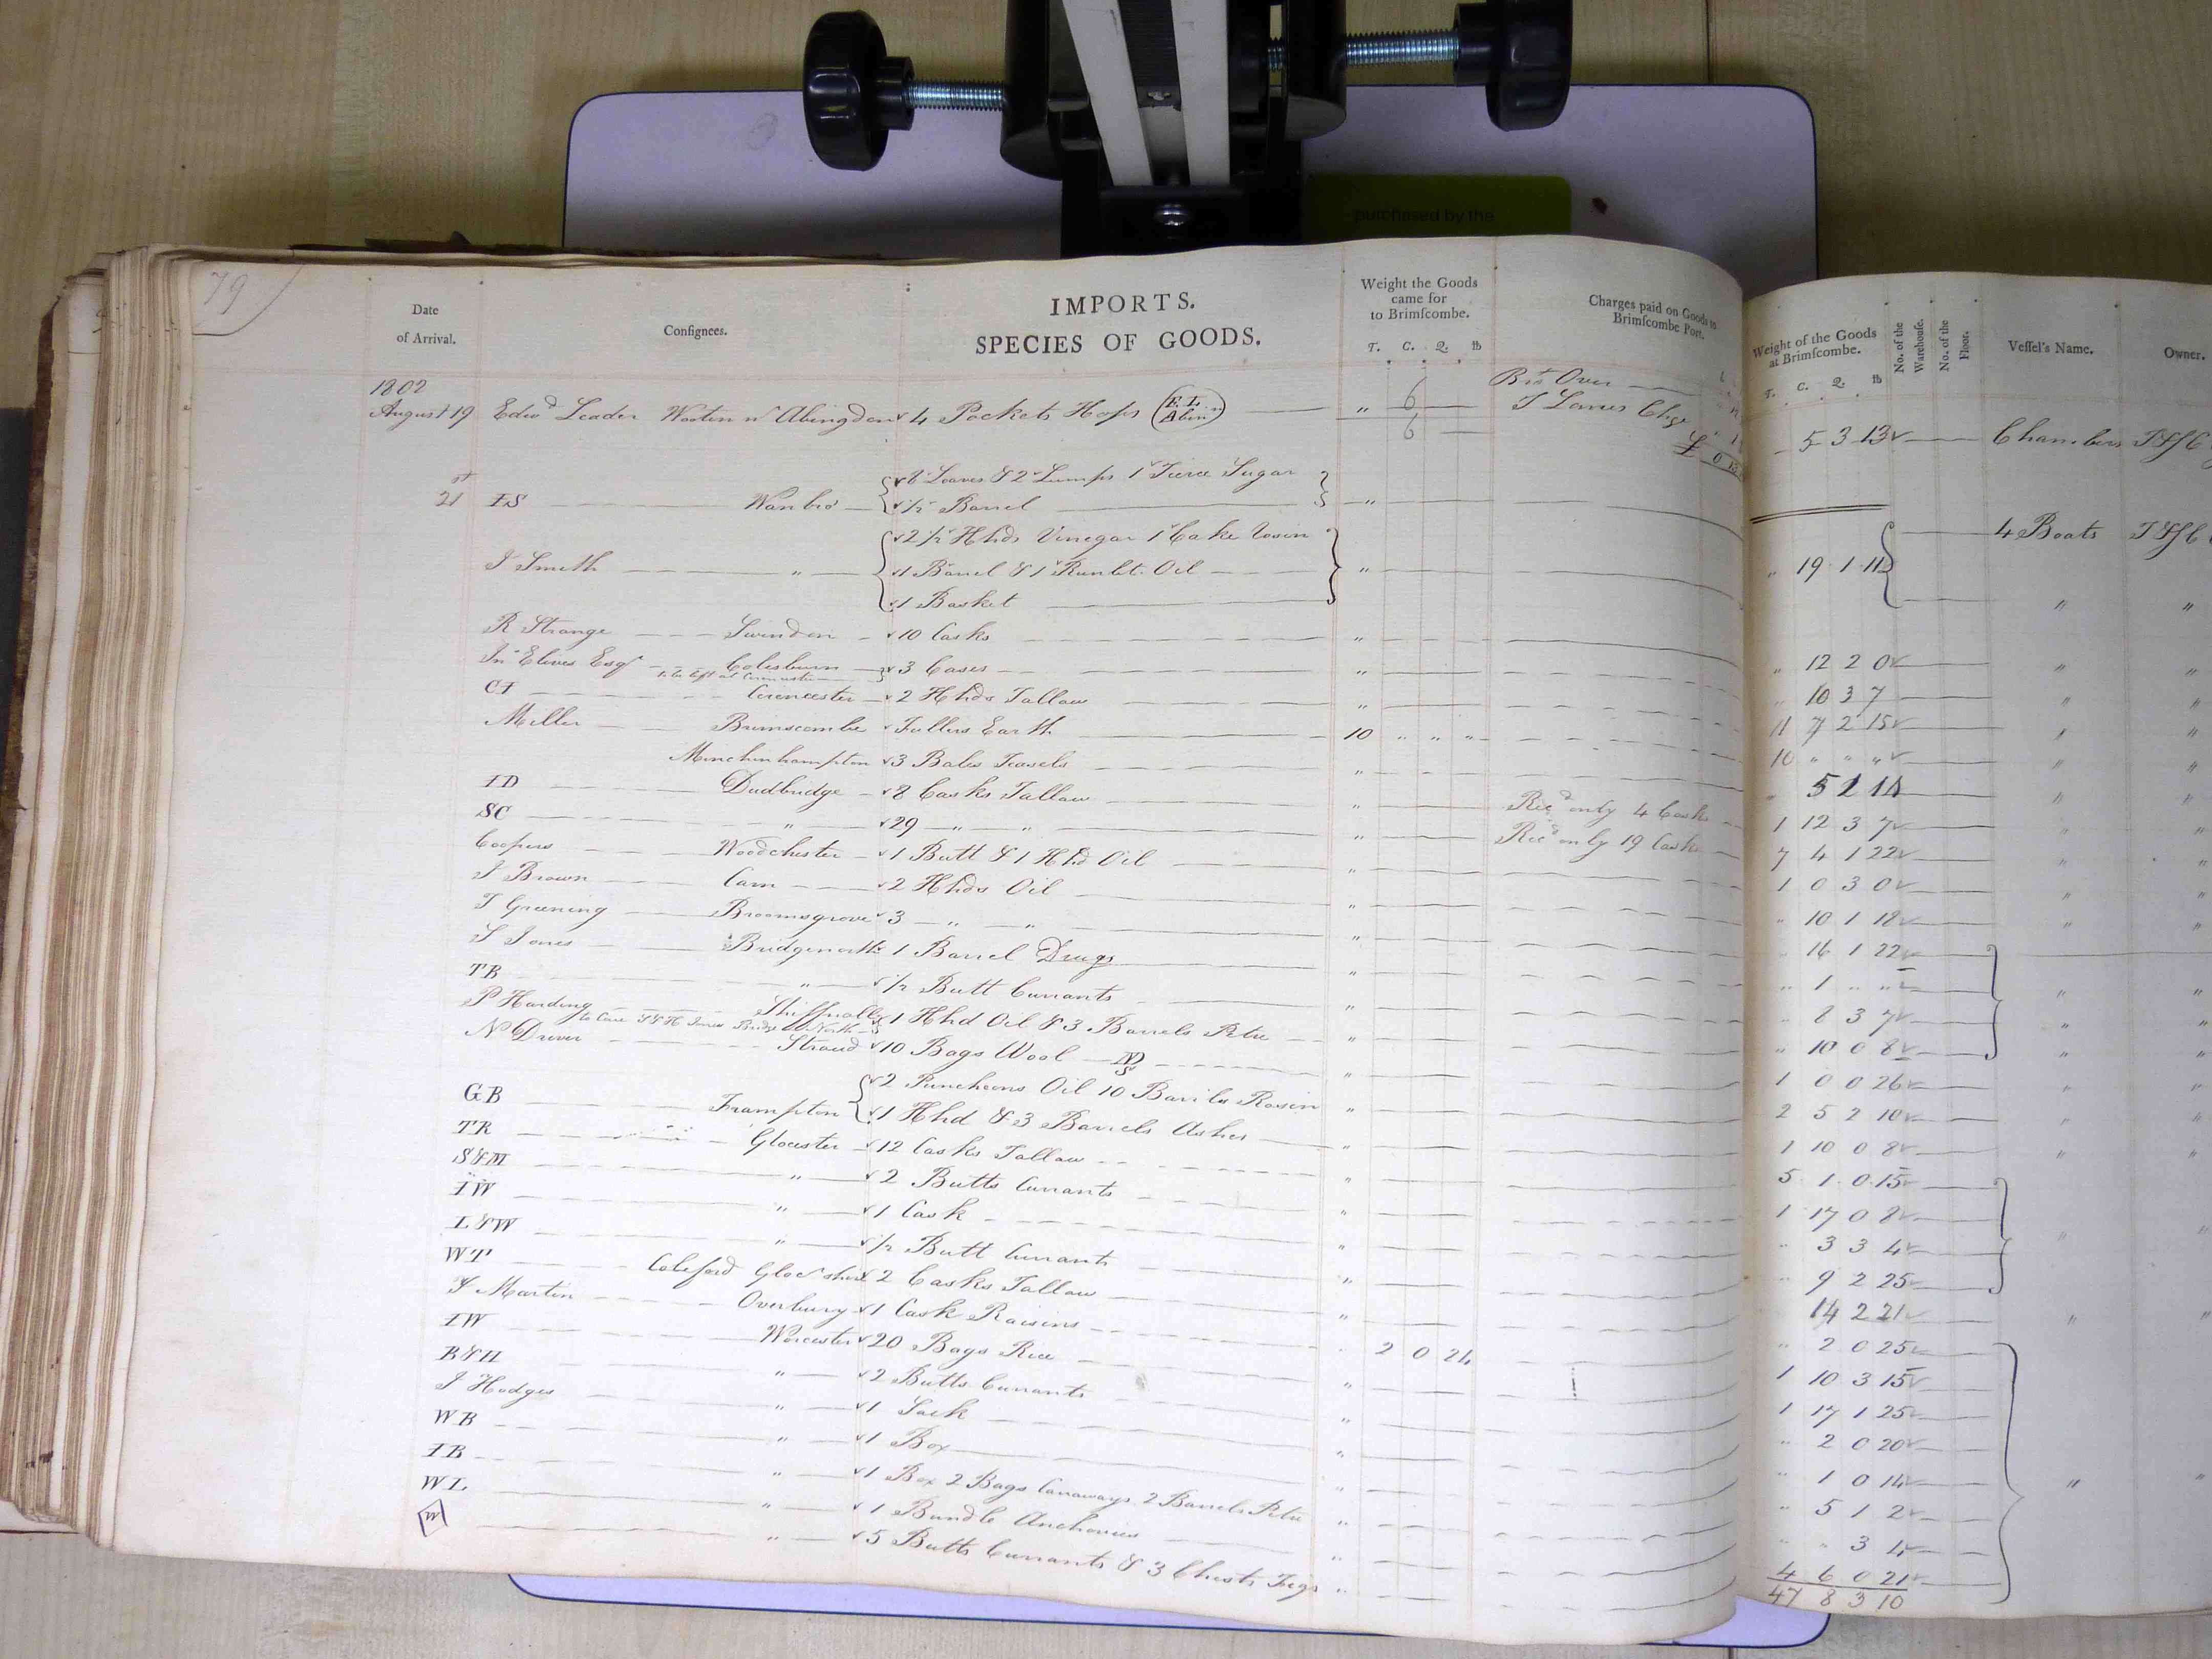 purchased by the
79
Date of Arrival.
Consignees.
IMPORTS.
SPECIES OF GOODS.
Weight the Goods came for to Brimscombe.
T. C. Q. lb
Charges paid on Goods to Brimscombe Port.
Weight of the Goods at Brimscombe.
T. C. Q. lb
No. of the Warehouse.
No. of the Floor.
Vessel's Name.
Owner.
1802
August 19 Edwd Leader Wooten nr Abingdon 4 Pockets Hops (E.L. Abinn) " 6 Bro Over 5 3 13 Chambers J&JC
6
21st IS Wanbro 8 Loaves & 2 Lumps 1 Tierce Sugar
1/2 Barrel "
J Smith " 2 1/2 Hhds Vinegar 1 Cake Rosin 4 Boats J&JC
1 Barrel & 1 Runlet Oil " " 19 1 11
1 Basket " "
R Strange Swindon 10 Casks " " 12 2 0 " "
Jno Elwes Esqr Colesburn 3 Cases " " 10 3 7 " "
to be left at Cirencester
CI Cirencester 2 Hhds Tallow " 11 7 2 15 " "
Miller Brimscombe Fullers Earth 10 " " " 10 " " " " "
Minchinhampton 3 Bales Teasels " " "
ID Dudbridge 8 Casks Tallow " Recd only 4 Casks 1 12 3 7 " "
SC " 29 " " " Recd only 19 Casks 7 4 1 22 " "
Coopers Woodchester 1 Butt & 1 Hhd Oil " 1 0 3 0 " "
J Brown Cam 2 Hhds Oil " " 10 1 18 " "
T Greening Broomsgrove 3 " " " " 16 1 22
S Jones Bridgenorth 1 Barrel Drugs " " 1 " " " "
TB " 1/2 Butt Currants " " 8 3 7 " "
P Harding Shiffnall 1 Hhd Oil & 3 Barrels Petre " " 10 0 8 " "
to Care Bridge North
N Driver Stroud 10 Bags Wool ND " 1 0 0 26 " "
GB Frampton 2 Puncheons Oil 10 Barrils Rosin " 2 5 2 10 " "
1 Hhd & 3 Barrels Ashes " 1 10 0 8 " "
TR Glocester 12 Casks Tallow 5 1 0 15
S&M " 2 Butts Currants " 1 17 0 8
IW " 1 Cask " " 3 3 4 " "
L&W " 1/2 Butt Currants " " 9 2 25
WT Coleford Glocshire 2 Casks Tallow " 14 2 21 " "
J Martin Overbury 1 Cask Raisins " " 2 0 25
IW Worcester 20 Bags Rice 2 0 24 1 10 3 15
B&H " 2 Butts Currants " 1 17 1 25
J Hodges " 1 Sack " " 2 0 20
WB " 1 Box " " 1 0 14 " "
IB " 1 Box 2 Bags Carraways 2 Barrels Petre " " 5 1 2
WL " 1 Bundle Anchovies " " " 3 4
W " 5 Butts Currants & 3 Chests Figs " 4 6 0 21
47 8 3 10